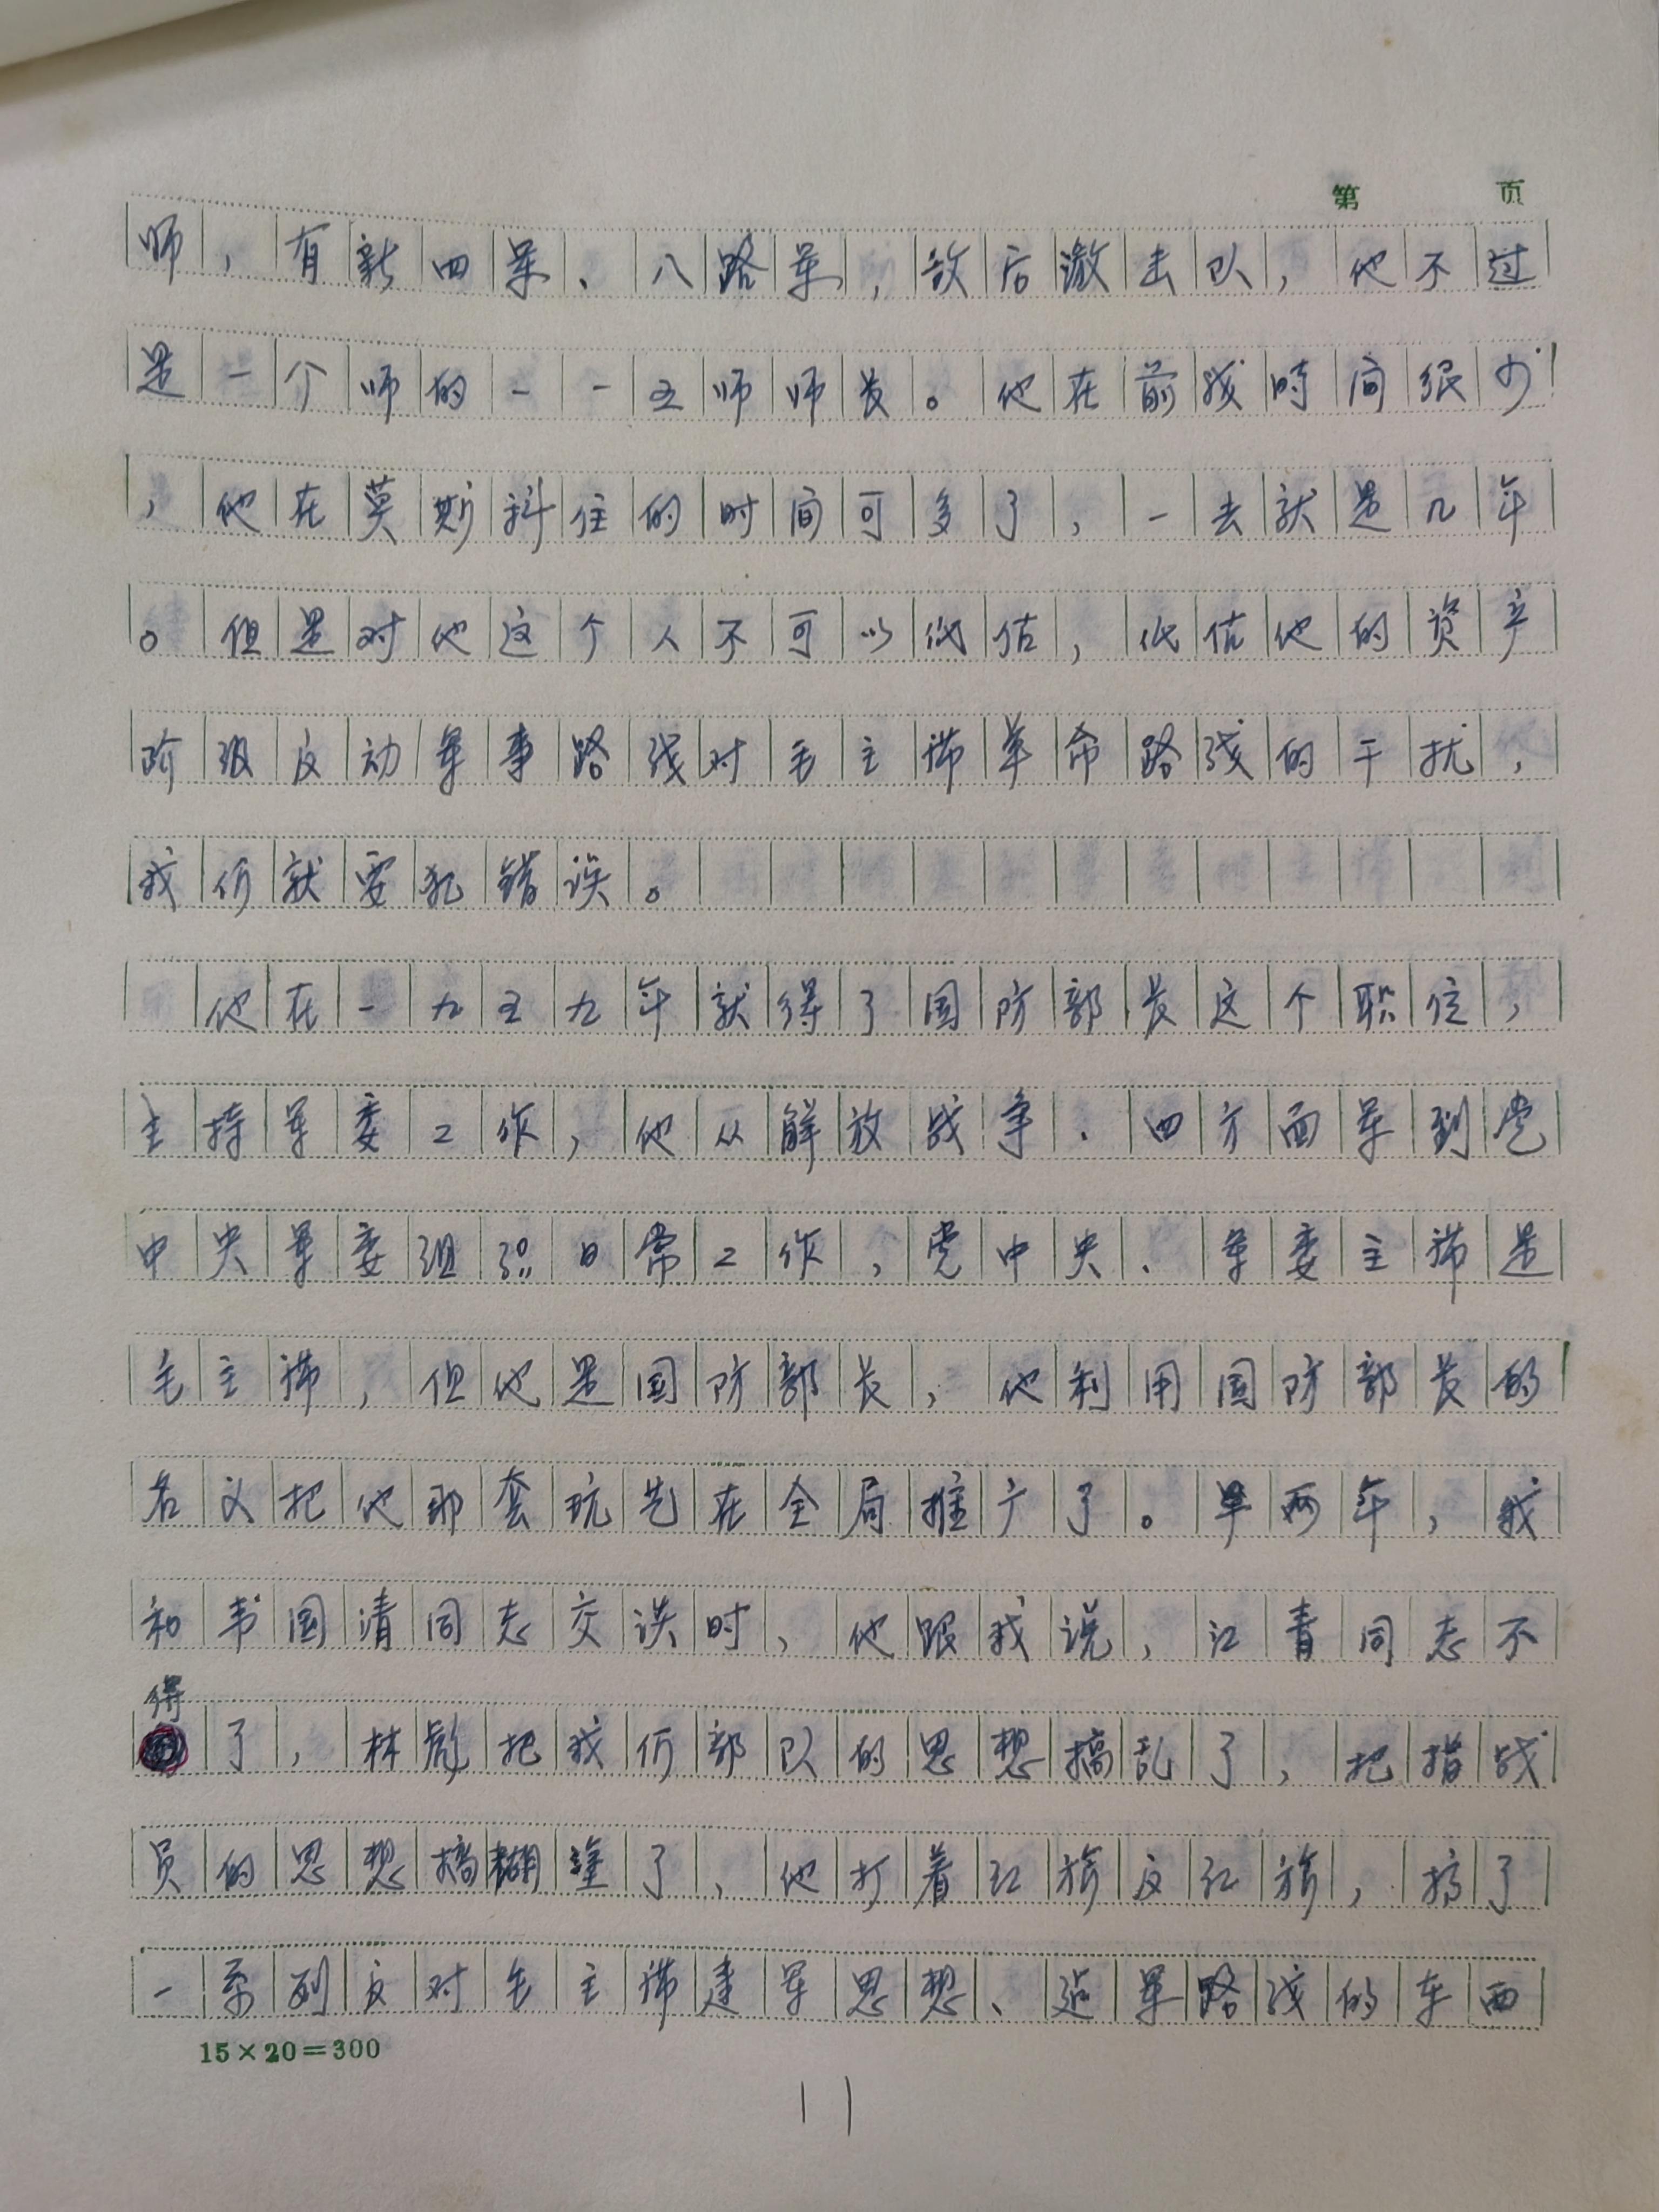 第 页
师，有新四军、八路军，敌后激击队，他不过
是一个师的一一五师师长。他在前线时间很少
，他在莫斯科住的时间可多了，一去就是几年
。但是对他这个人不可以低估，低估他的资产
阶级反动军事路线对毛主席革命路线的干扰，
我们就要犯错误。
他在一九五九年就得了国防部长这个职位，
主持军委工作，他从解放战争、四方面军到党
中央军委组织日常工作，党中央、军委主席是
毛主席，但他是国防部长，他利用国防部长的
名义把他那套玩艺在全局推广了。早两年，我
和韦国清同志交谈时，他跟我说，江青同志不
得
了，林彪把我们部队的思想搞乱了，把指战
员的思想搞糊塗了，他打着红旗反红旗，搞了
一系列反对毛主席建军思想、建军路线的东西
15×20=300
11